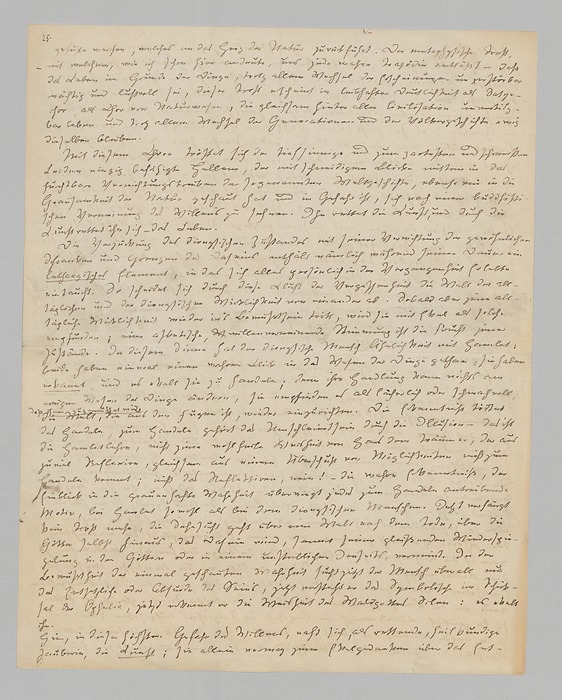 25.
gefühle weichen, welches an das Herz der Natur zurückführt. Der metaphysische Trost,
— mit welchem, wie ich schon hier andeute, uns jede wahre Tragödie entläßt — daß
das Leben im Grunde der Dinge, trotz allem Wechsel der Erscheinungen unzerstörbar
mächtig und lustvoll sei, dieser Trost erscheint in leibhafter Deutlichkeit als Satyr-
chor, als Chor von Naturwesen, die gleichsam hinter aller Civilisation unvertilg-
bar leben und trotz allem Wechsel der Generationen und der Völkergeschichte ewig
dieselben bleiben.
Mit diesem Chore tröstet sich der tiefsinnige und zum zartesten und schwersten
Leiden einzig befähigte Hellene, der mit schneidigem Blicke mitten in das
furchtbare Vernichtungstreiben der sogenannten Weltgeschichte, ebenso wie in die
Grausamkeit der Natur geschaut hat und in Gefahr ist, sich nach einer buddhisti-
schen Verneinung des Willens zu sehnen. Ihn rettet die Kunst, und durch die
Kunst rettet ihn sich — das Leben.
Die Verzückung des dionysischen Zustandes mit seiner Vernichtung der gewöhnlichen
Schranken und Grenzen des Daseins enthält nämlich während seiner Dauer ein
lethargisches Element, in das sich alles persönlich in der Vergangenheit Erlebte
eintaucht. So scheidet sich durch diese Kluft der Vergessenheit die Welt der all-
täglichen und der dionysischen Wirklichkeit von einander ab. Sobald aber jene all-
tägliche Wirklichkeit wieder ins Bewußtsein tritt, wird sie mit Ekel als solche
empfunden; eine asketische, willenverneinende Stimmung ist die Frucht jener
Zustände. In diesem Sinne hat der dionysische Mensch Ähnlichkeit mit Hamlet:
beide haben einmal einen wahren Blick in das Wesen der Dinge gethan, sie haben
erkannt, und es ekelt sie zu handeln; denn ihre Handlung kann nichts am
ewigen Wesen der Dinge ändern, sie empfinden es als lächerlich oder schmachvoll,
daß ihnen zugemuthet wird
die Welt, die aus den Fugen ist, wieder einzurichten. Die Erkenntniß tödtet
das Handeln, zum Handeln gehört das Umschleiertsein durch die Illusion — das ist
die Hamletlehre, nicht jene wohlfeile Weisheit von Hans dem Träumer, der aus
zu viel Reflexion, gleichsam aus einem Überschuß von Möglichkeiten nicht zum
Handeln kommt; nicht das Reflektieren, nein! — die wahre Erkenntniß, der
Einblick in die grauenhafte Wahrheit überwiegt jedes zum Handeln antreibende
Motiv, bei Hamlet sowohl als bei dem dionysischen Menschen. Jetzt verfängt
kein Trost mehr, die Sehnsucht geht über eine Welt nach dem Tode, über die
Götter selbst hinaus, das Dasein wird, sammt seiner gleißenden Wiederspie-
gelung in den Göttern oder in einem unsterblichen Jenseits, verneint. In der
Bewußtheit der einmal geschauten Wahrheit sieht jetzt der Mensch überall nur
das Entsetzliche oder Absurde des Seins, jetzt versteht er das Symbolische im Schick-
sal der Ophelia, jetzt erkennt er die Weisheit des Waldgottes Silen: es ekelt
ihn.
Hier, in dieser höchsten Gefahr des Willens, naht sich, als rettende, heilkundige
Zauberin, die Kunst; sie allein vermag jene Ekelgedanken über das Ent-